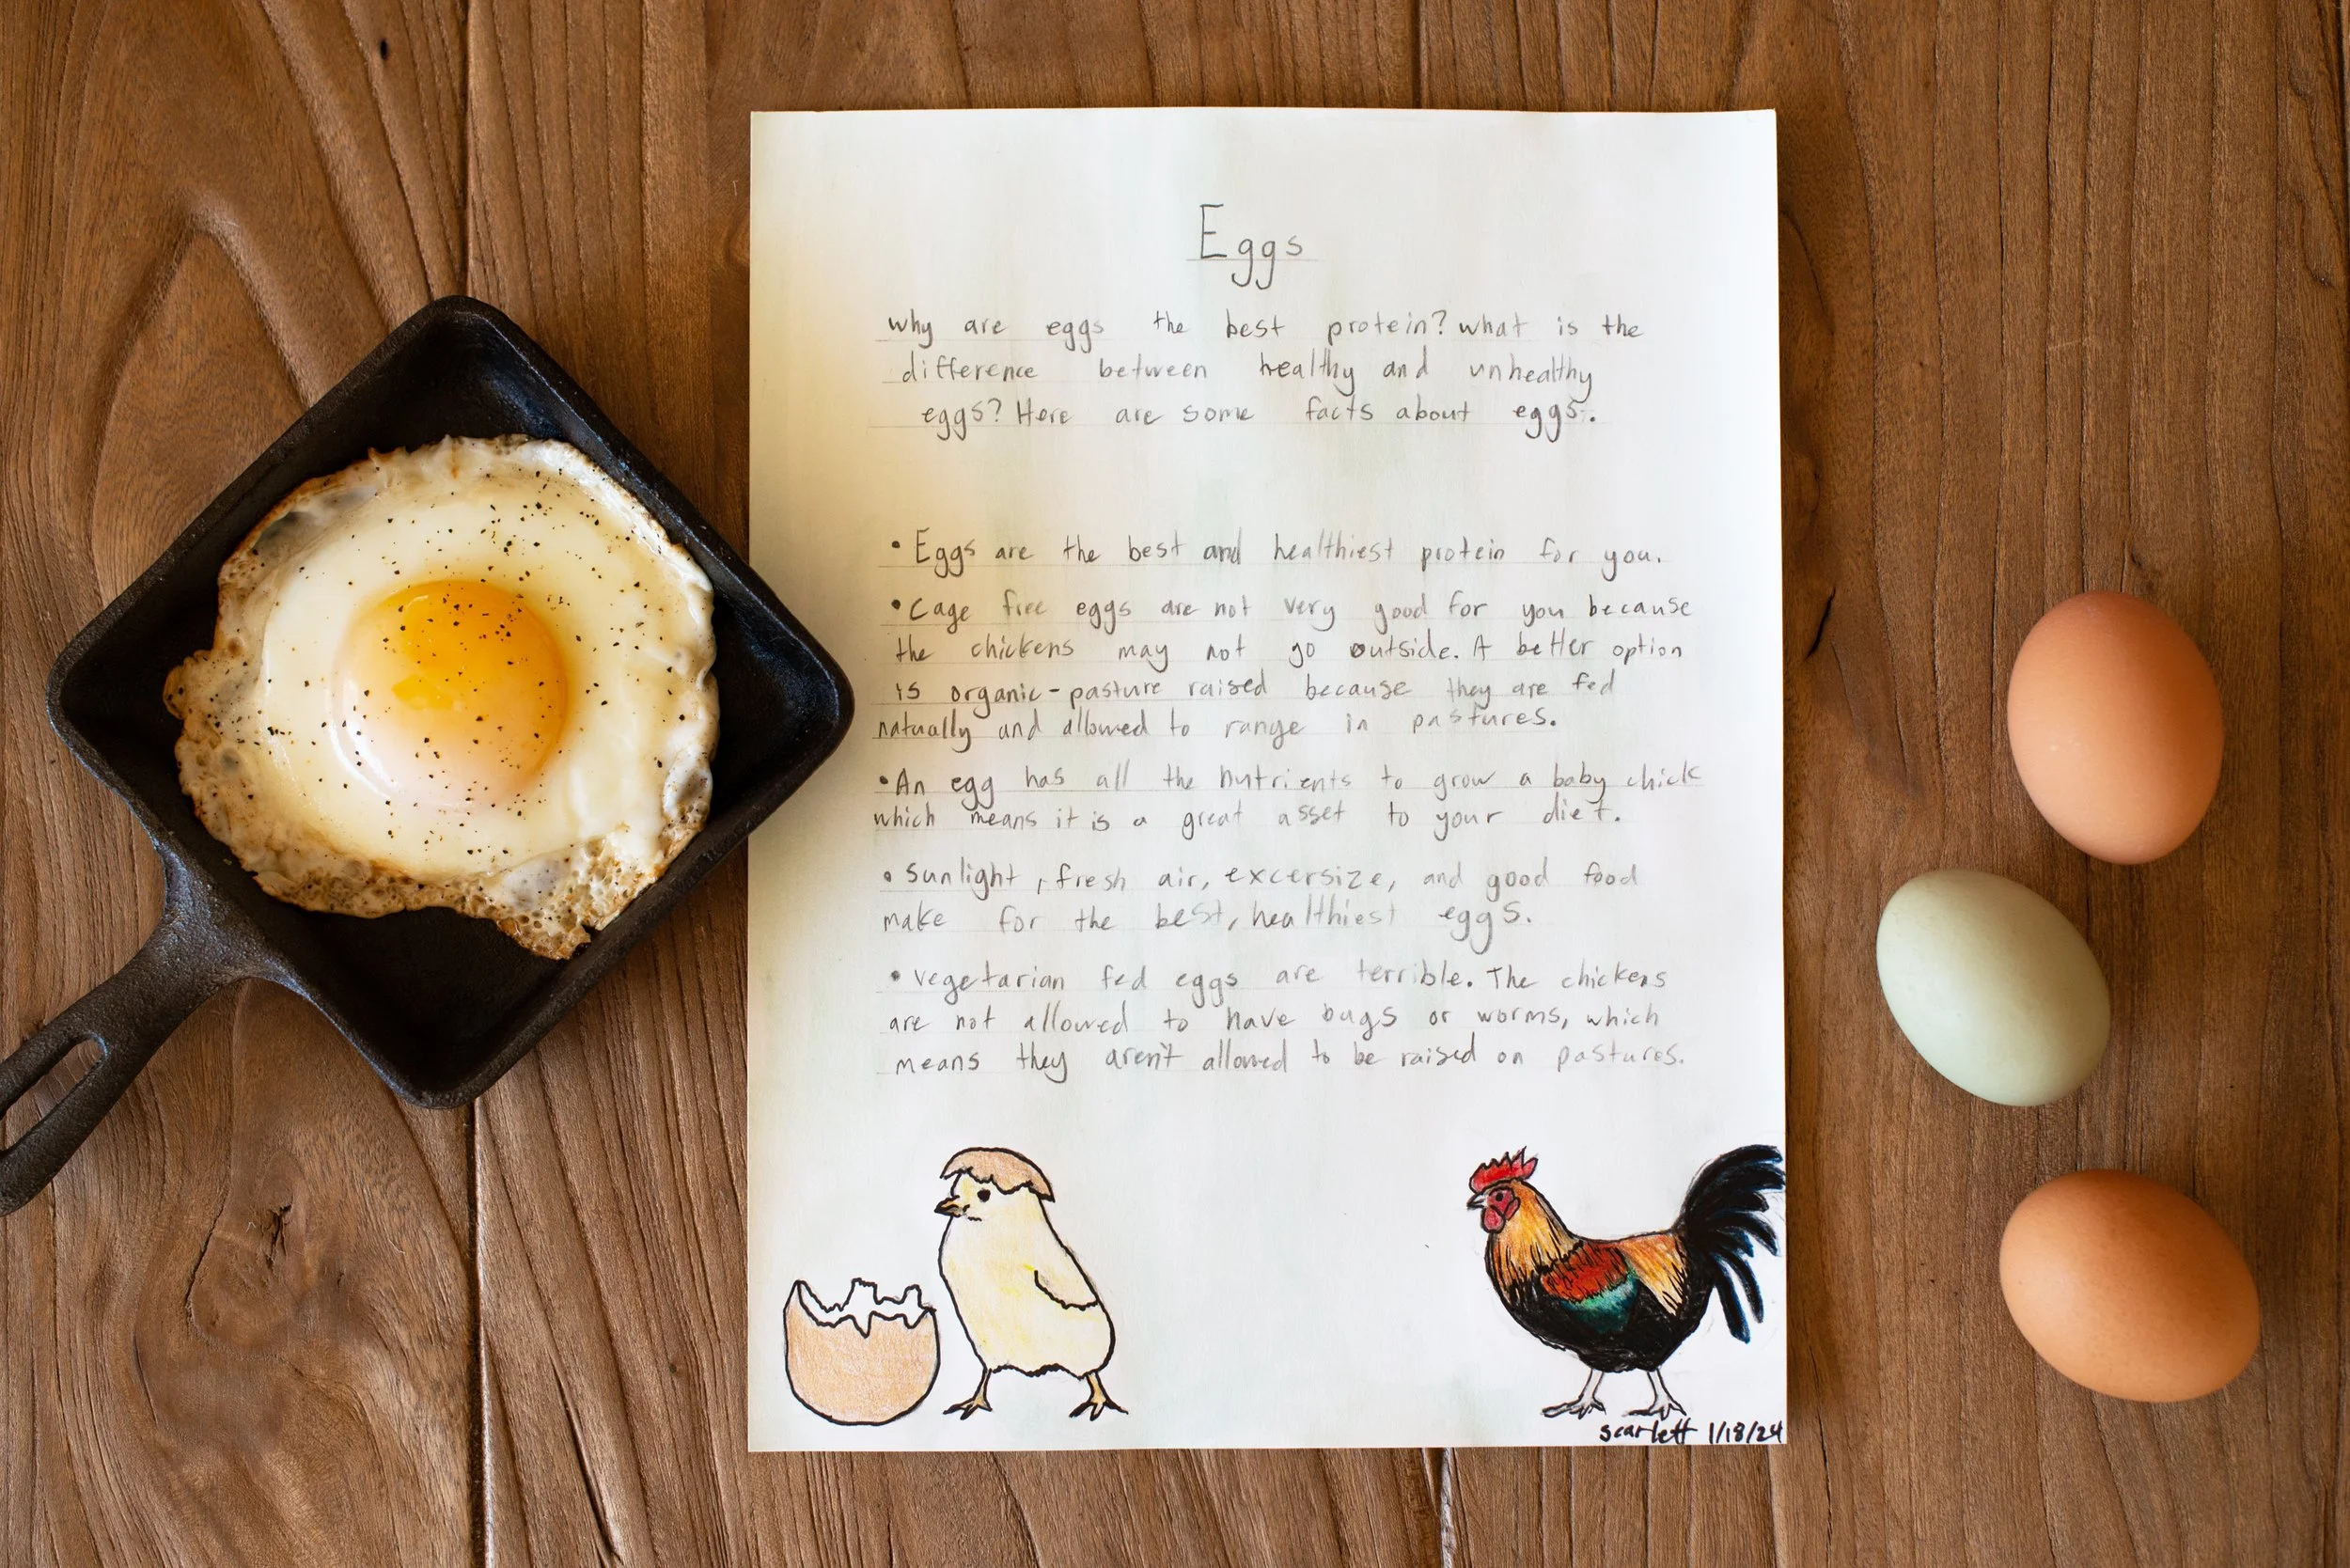 Eggs
why are eggs the best protein? what is the
difference between healthy and unhealthy
eggs? Here are some facts about eggs.
• Eggs are the best and healthiest protein for you.
• Cage free eggs are not very good for you because
the chickens may not go outside. A better option
is organic-pasture raised because they are fed
naturally and allowed to range in pastures.
• An egg has all the nutrients to grow a baby chick
which means it is a great asset to your diet.
• Sunlight, fresh air, excersize, and good food
make for the best, healthiest eggs.
• vegetarian fed eggs are terrible. The chickens
are not allowed to have bugs or worms, which
means they aren't allowed to be raised on pastures.
scarlett 1/18/24